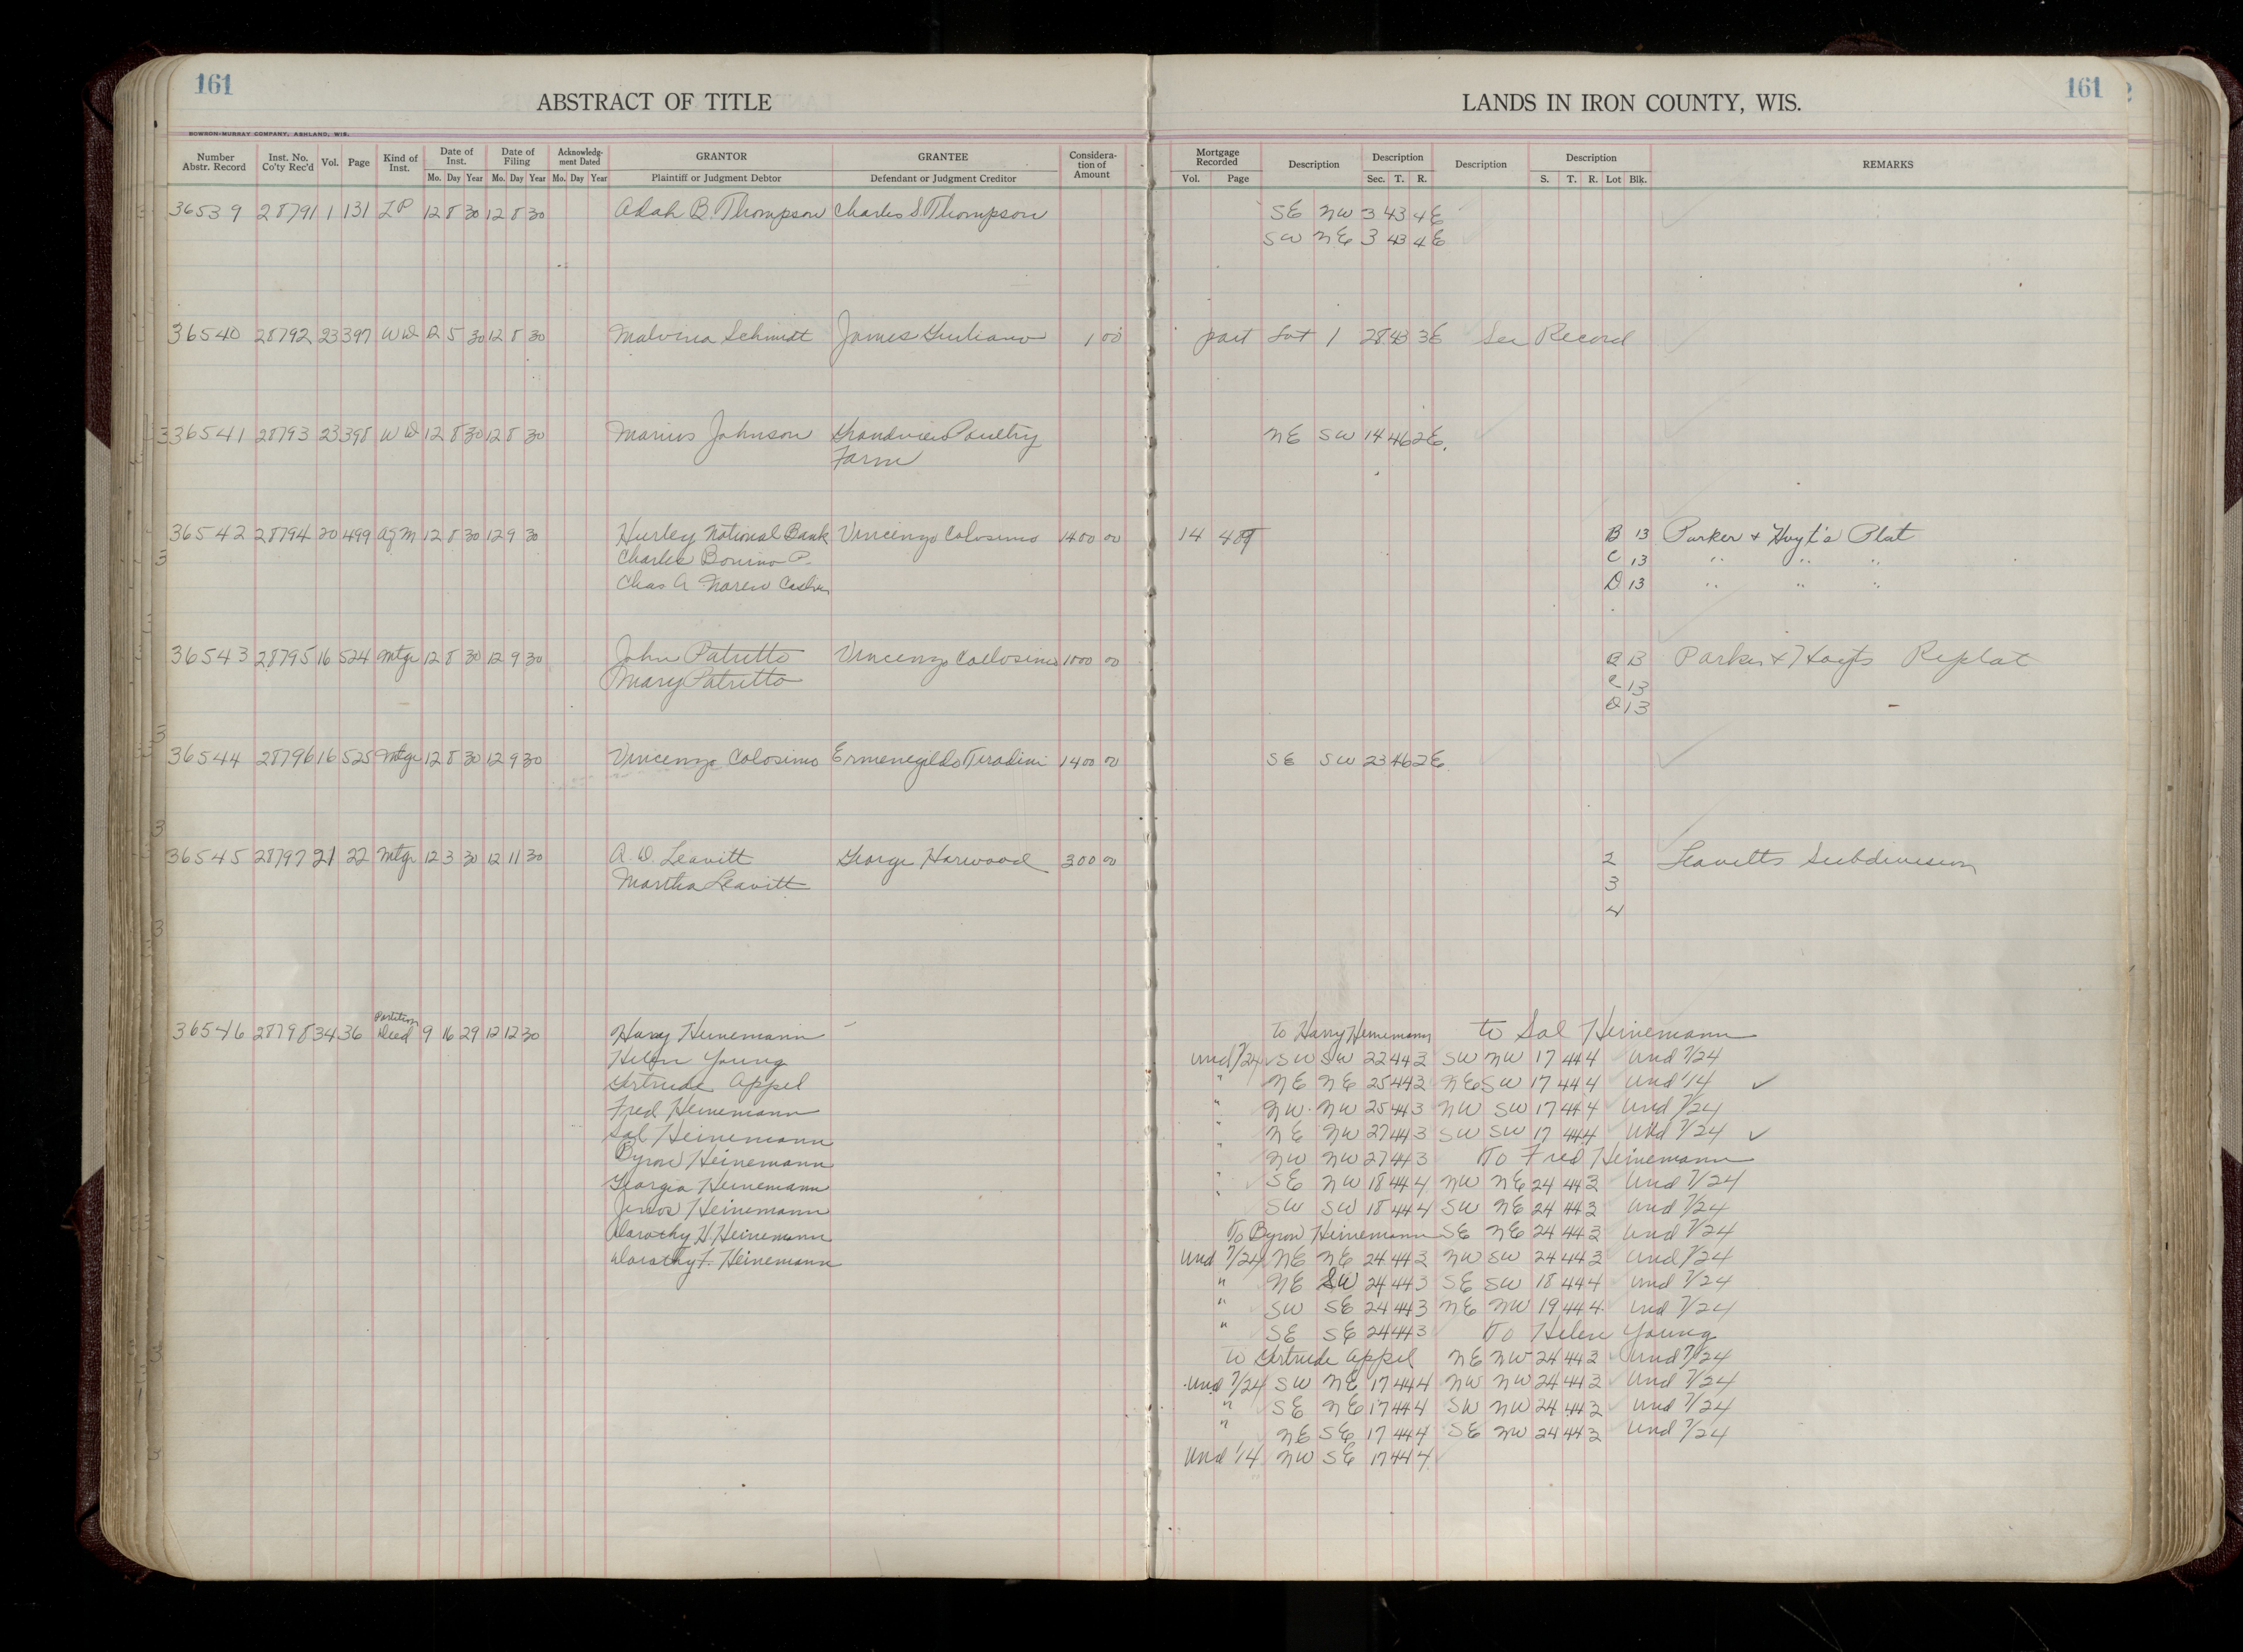 161
ABSTRACT OF TITLE
LANDS IN IRON COUNTY, WIS.
161
BOWSON-MURRAY COMPANY, ASHLAND, WIS.
Number Abstr. Record | Inst. No. Co'ty Rec'd | Vol. | Page | Kind of Inst. | Date of Inst. Mo. Day Year | Date of Filing Mo. Day Year | Acknowledgment Dated Mo. Day Year | GRANTOR Plaintiff or Judgment Debtor | GRANTEE Defendant or Judgment Creditor | Consideration of Amount | Mortgage Recorded Vol. Page | Description | Description Sec. T. R. | Description | Description S. T. R. Lot Blk. | REMARKS
36539 28791 1 131 LP 12 8 30 12 8 30 Adah B. Thompson Charles S. Thompson SE NW 3 43 4E
SW NE 3 43 4E
36540 28792 23 397 WD 12 5 30 12 8 30 Malvina Schmidt James Giuliano 1 00 part Lot 1 28 43 3E See Record
36541 28793 23 398 WD 12 8 30 12 8 30 Marius Johnson Grandview Poultry NE SW 14 46 2E.
Farm
36542 28794 20 499 Asgm 12 8 30 12 9 30 Hurley National Bank Vincenzo Colosimo 1400 00 14 489 B 13 Parker & Hoyt's Plat
Charles Bonino P. C 13 " " "
Chas A Cashier D 13 " " "
36543 28795 16 524 Mtge 12 8 30 12 9 30 John Patritto Vincenzo Collosimo 1000 00 B 13 Parker & Hoyts Replat
Mary Patritto C 13
D 13
36544 28796 16 525 Mtge 12 8 30 12 9 30 Vincenzo Colosimo Ermenegildo Teradini 1400 00 SE SW 23 46 2E
36545 28797 21 22 Mtge 12 3 30 12 11 30 A. D. Leavitt George Harwood 300 00 2 Leavitts Subdivision
Martha Leavitt 3
4
36546 28798 34 36 Partition Deed 9 16 29 12 12 30 Harry Heinemann To Harry Heinemann to Sol Heinemann
Helen Young und 7/24 SW SW 22 44 3 SW NW 17 44 4 und 7/24
Gertrude Appel " NE NE 25 44 3 NE SW 17 44 4 und 1/4
Fred Heinemann " NW NW 25 44 3 NW SW 17 44 4 und 7/24
Sol Heinemann " NE NW 27 44 3 SW SW 17 44 4 und 7/24
Byron Heinemann " NW NW 27 44 3 To Fred Heinemann
Georgia Heinemann " SE NW 18 44 4 NW NE 24 44 3 und 7/24
Heinemann " SW SW 18 44 4 SW NE 24 44 3 und 7/24
Dorothy H. Heinemann To Byron Heinemann SE NE 24 44 3 und 7/24
Dorothy F. Heinemann und 7/24 NE NE 24 44 3 NW SW 24 44 3 und 7/24
" NE SW 24 44 3 SE SW 18 44 4 und 7/24
" SW SE 24 44 3 NE NW 19 44 4 und 7/24
" SE SE 24 44 3 To Helen Young
To Gertrude Appel NE NW 24 44 3 und 7/24
und 7/24 SW NE 17 44 4 NW NW 24 44 3 und 7/24
" SE NE 17 44 4 SW NW 24 44 3 und 7/24
" NE SE 17 44 4 SE NW 24 44 3 und 7/24
und 1/4 NW SE 17 44 4